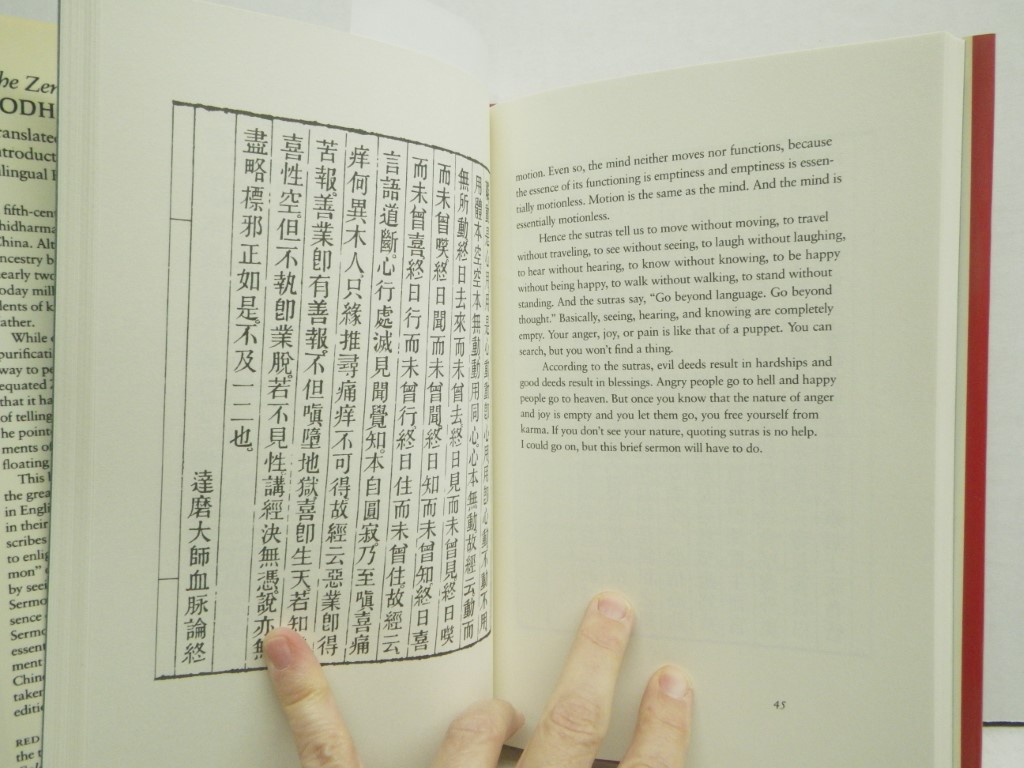 he Zen
ODH
ranslate
ntroduct
ilingual
fifth-cen
hidharma
China. Alt
ncestry b
early two
oday mill
dents of k
ather.
While
purificati
way to pe
equated
that it ha
of telling
he point
ments of
floating
This
the grea
in Engli
in their
scribes
to enlig
mon"
by seei
Sermo
sence
Sermo
essent
ment
Chin
taker
editi
RED
the t
是心用用是心動動即心用用即心動不動不用
用體本空空本無動動用同心心本無動故經云動而
無所動終日去來而未曾去終日見而未曾見終日㗛
而未曾㗛終日聞而未曾聞終日知而未曾知終日喜
而未曾喜終日行而未曾行終日住而未曾住故經云
言語道斷。心行處滅見聞覺知。本自圓寂乃至嗔喜痛
痒何異木人。只緣推尋痛痒不可得故經云惡業卽得
苦報。善業卽有善報。不但嗔墮地獄喜卽生天。若知
喜性空。但不執卽業脫。若不見性。講經決無憑。說亦無
盡略標邪正如是。不及一二也。
達磨大師血脉論終
motion. Even so, the mind neither moves nor functions, because
the essence of its functioning is emptiness and emptiness is essen-
tially motionless. Motion is the same as the mind. And the mind is
essentially motionless.
Hence the sutras tell us to move without moving, to travel
without traveling, to see without seeing, to laugh without laughing,
to hear without hearing, to know without knowing, to be happy
without being happy, to walk without walking, to stand without
standing. And the sutras say, "Go beyond language. Go beyond
thought." Basically, seeing, hearing, and knowing are completely
empty. Your anger, joy, or pain is like that of a puppet. You can
search, but you won't find a thing.
According to the sutras, evil deeds result in hardships and
good deeds result in blessings. Angry people go to hell and happy
people go to heaven. But once you know that the nature of anger
and joy is empty and you let them go, you free yourself from
karma. If you don't see your nature, quoting sutras is no help.
I could go on, but this brief sermon will have to do.
45